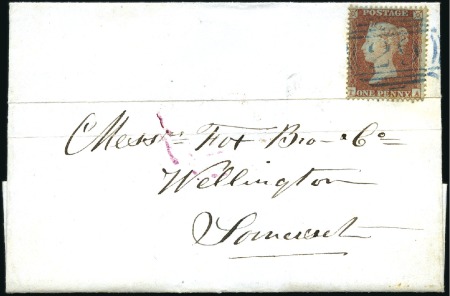 POSTAGE
ONE PENNY
A
Messrs Fox Bro & Co
Wellington
Somerset